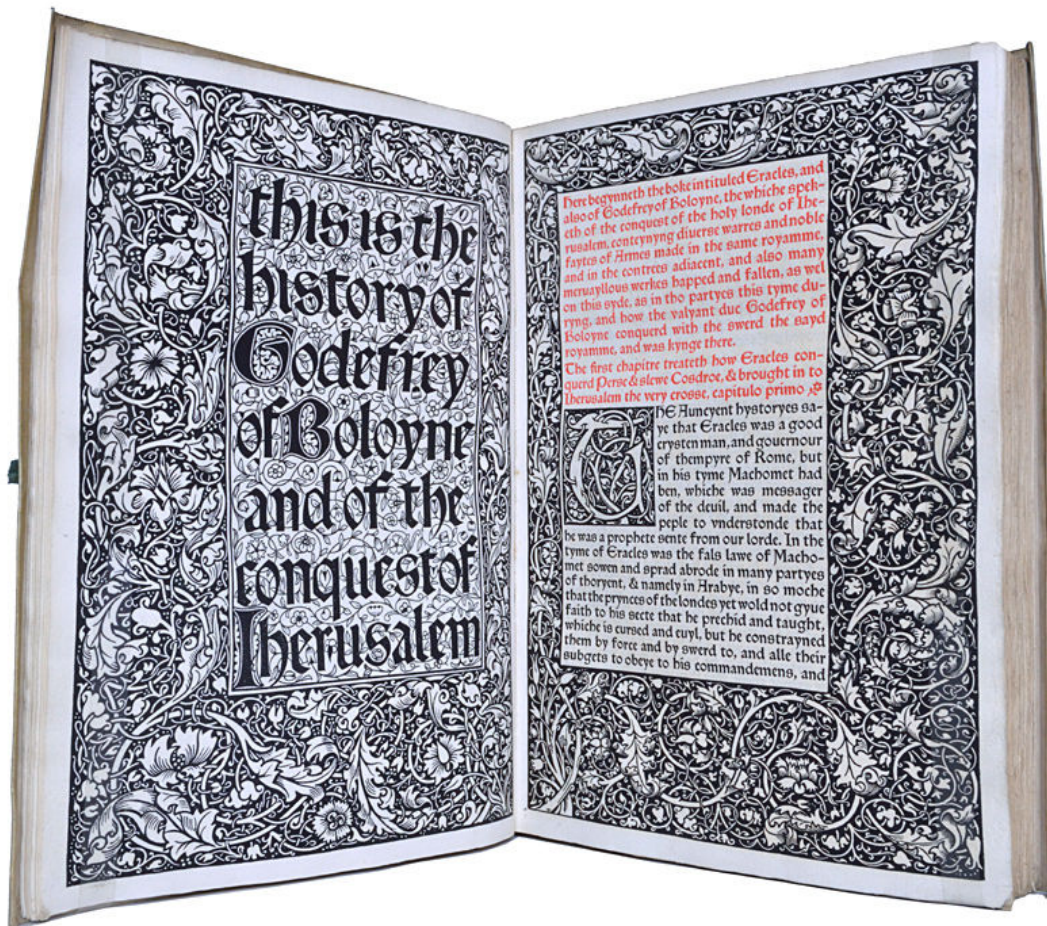 this is the
history of
Godefrey
of Boloyne
and of the
conquest of
Iherusalem
here begynneth the boke intituled Eracles, and
also of Godefrey of Boloyne, the whiche spek-
eth of the conquest of the holy londe of Ihe-
rusalem, conteynyng diuerse warres and noble
faytes of Armes made in the same royamme,
and in the contrees adiacent, and also many
meruayllous werkes happed and fallen, as wel
on this syde, as in tho partyes this tyme du-
ryng, and how the valyant duc Godefrey of
Boloyne conquerd with the swerd the sayd
royamme, and was kynge there.
The first chapitre treateth how Eracles con-
querd Perse & slewe Cosdroe, & brought in to
Iherusalem the very crosse, capitulo primo
THE Auncyent hystoryes sa-
ye that Eracles was a good
crysten man, and gouernour
of thempyre of Rome, but
in his tyme Machomet had
ben, whiche was messager
of the deuil, and made the
peple to vnderstonde that
he was a prophete sente from our lorde. In the
tyme of Eracles was the fals lawe of Macho-
met sowen and sprad abrode in many partyes
of thoryent, & namely in Arabye, in so moche
that the prynces of the londes yet wold not gyue
faith to his secte that he prechid and taught,
whiche is cursed and euyl, but he constrayned
them by force and by swerd to, and alle their
subgets to obeye to his commandemens, and